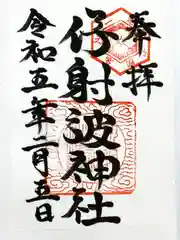 奉拝
伊射波神社
令和五年一月五日